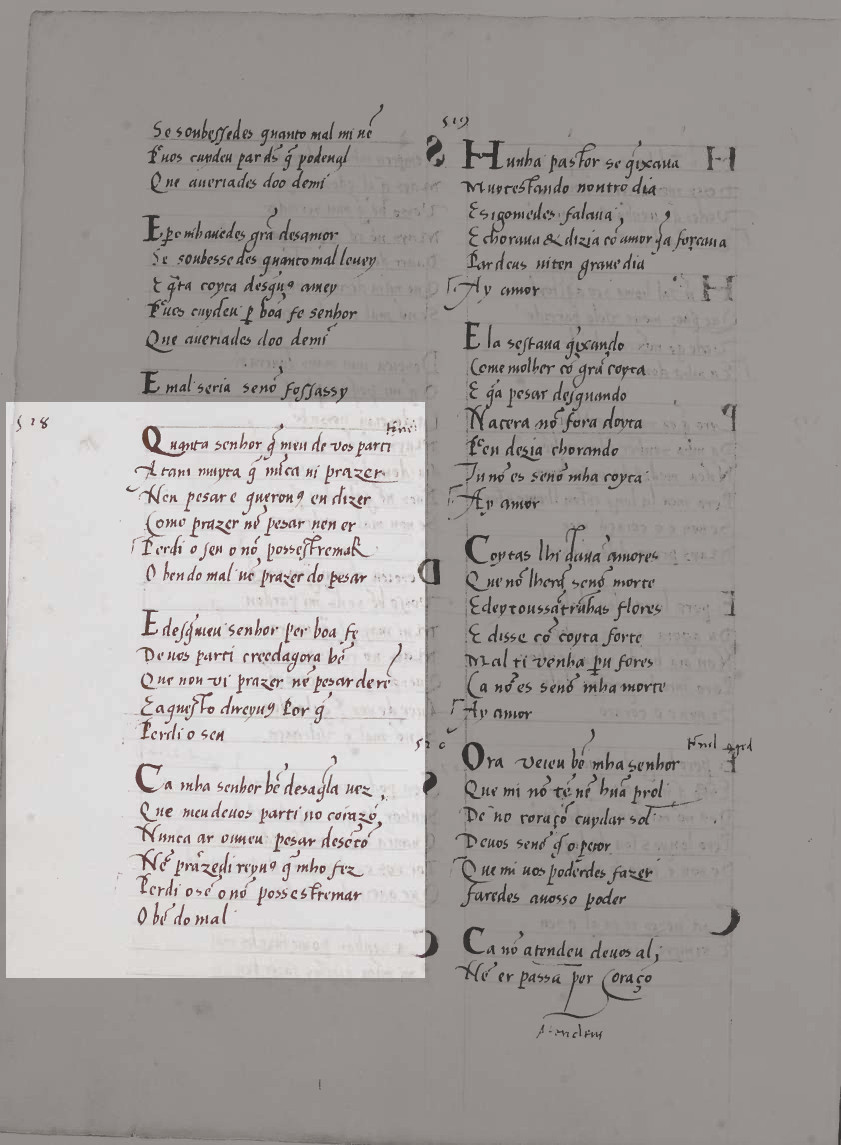 Se soubessedes quanto mal mi uẽ
Pᵉuos cuydeu par dš q̃ podeual
Que aueriades doo demi
Eꝑo mhauedes grã desamor
Se soubessedes quanto mal leuey
E q̃ta coyta desquꝰ amey
Pᵉues cuydeu ꝑ boã fe senhor
Que aueriades doo demi
E mal seria senõ fossassy
518
Quanta senhor q̃ meu de vos parti
Atam muyta q̃ nũca ui prazer
Nen pesar e querouꝰ eu dizer
Como prazer nẽ pesar nen er
Perdi o sen o nõ posso stremar
O ben do mal nẽ prazer do pesar
E desq̃meu senhor per boa fe
De uos parti creedagora bẽ
Que non vi prazer nẽ pesar de rẽ
E aquesto direyuꝰ Por q̃
Perdi o sen
Ca mha senhor bẽ desaq̃la vez
Que meu deuos parti no corazõ
Nunca ar ouueu pesar desẽtõ
Nẽ prazedi reyuꝰ q̃ mho fez
Perdi o sẽ o nõ posso stremar
O bẽ do mal
519
Hunha pastor se q̃ixaua
Muytestando noutro dia
E sigomedes falaua
E choraua & dizia cõ amor q̃a forçaua
Par deus uiten graue dia
Ay amor
Ela sestaua q̃ixando
Come molher cõ grã coyta
E q̃a pesar desquando
Nacera nõ fora doyta
Pᵉeu dezia chorando
Tu nõ es senõ mha coyta
Ay amor
Coytas lhi dauã amores
Que nõ lherã senõ morte
E deytoussãtrũhas flores
E disse cõ coyta forte
Mal ti venha ꝑu fores
Ca nõ es senõ mha morte
Ay amor
520
Ora veieu bẽ mha senhor
Que mi nõ tẽ nẽ hũa prol
De no coraçõ cuydar sol
Deuos senõ q̃ o peor
Que mi uos poderdes fazer
faredes auosso poder
Ca nõ atendeu deuos al
Nẽ er passa per Coraço